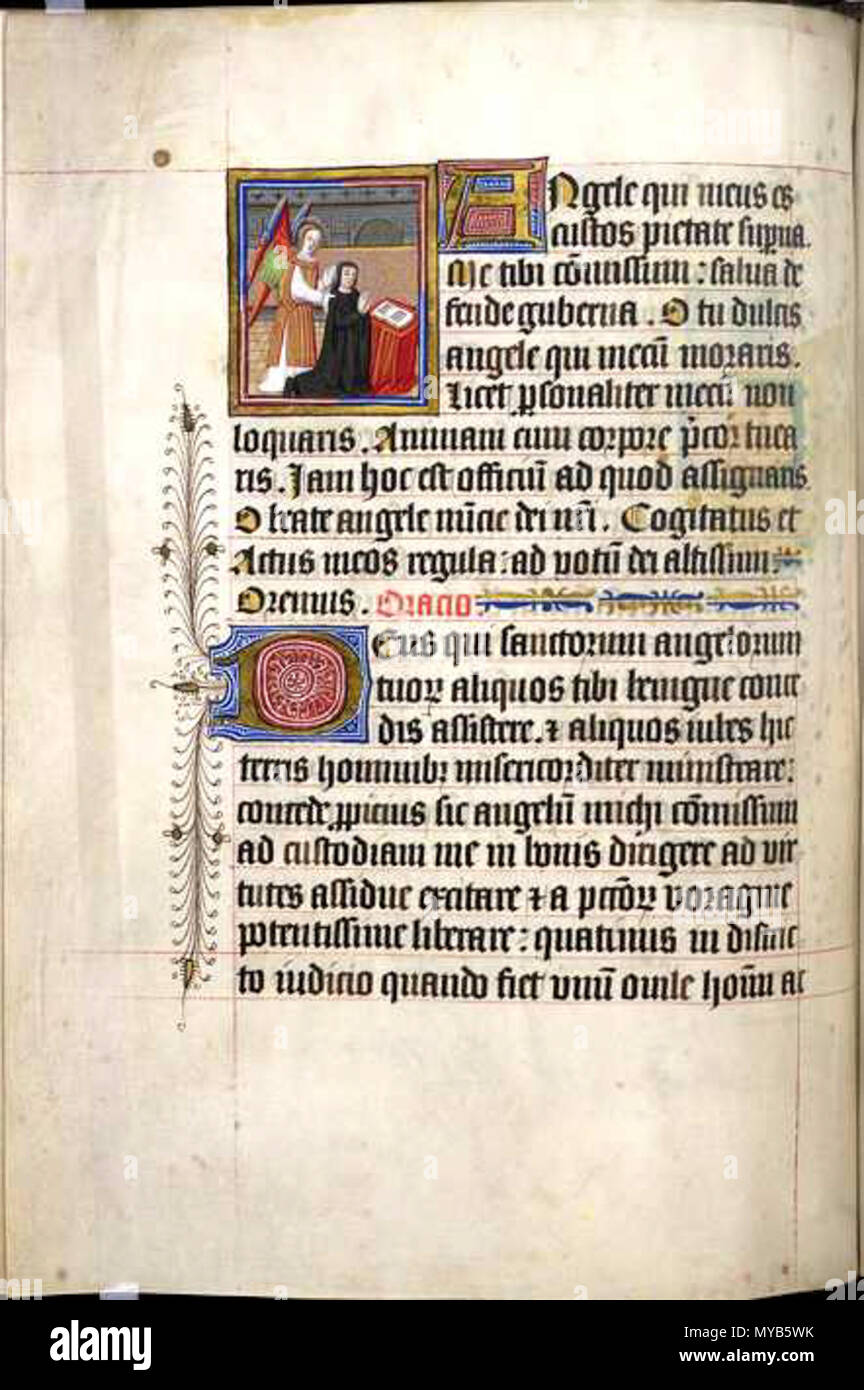 ANgele qui meus es
custos pietate sup̱na.
Me tibi cōmissum : salua de
fende guberna . O tu dulcis
angele qui mecū moraris.
Licet ꝑsonaliter mecū non
loquaris . Animam cum corpore p̄cor tuea
ris . Jam hoc est officiū ad quod assignaris.
O beate angele nūcie dei nr̄i . Cogitatus et
Actus meos regula : ad votū dei altissimi.
Oremus . Oracio
DEus qui sanctorum angelorum
tuoꝝ aliquos tibi benigne conce
dis assistere . ⁊ aliquos iubes hic
terris hominibꝫ misericorditer ministrare :
concede ꝓpicius sic angelū michi cōmissum
ad custodiam me in bonis dirigere ad vir
tutes assidue excitare ⁊ a pccōꝝ voragine
potentissime liberare : quatinus in distric
to iudicio quando fiet vnū ouile hoīm ac
alamy
Image ID: MYB5WK
www.alamy.com